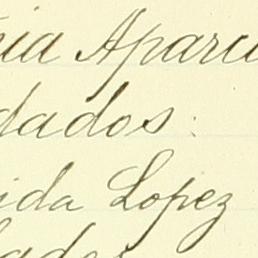 nia Apari
dados:
ida Lopez
lados